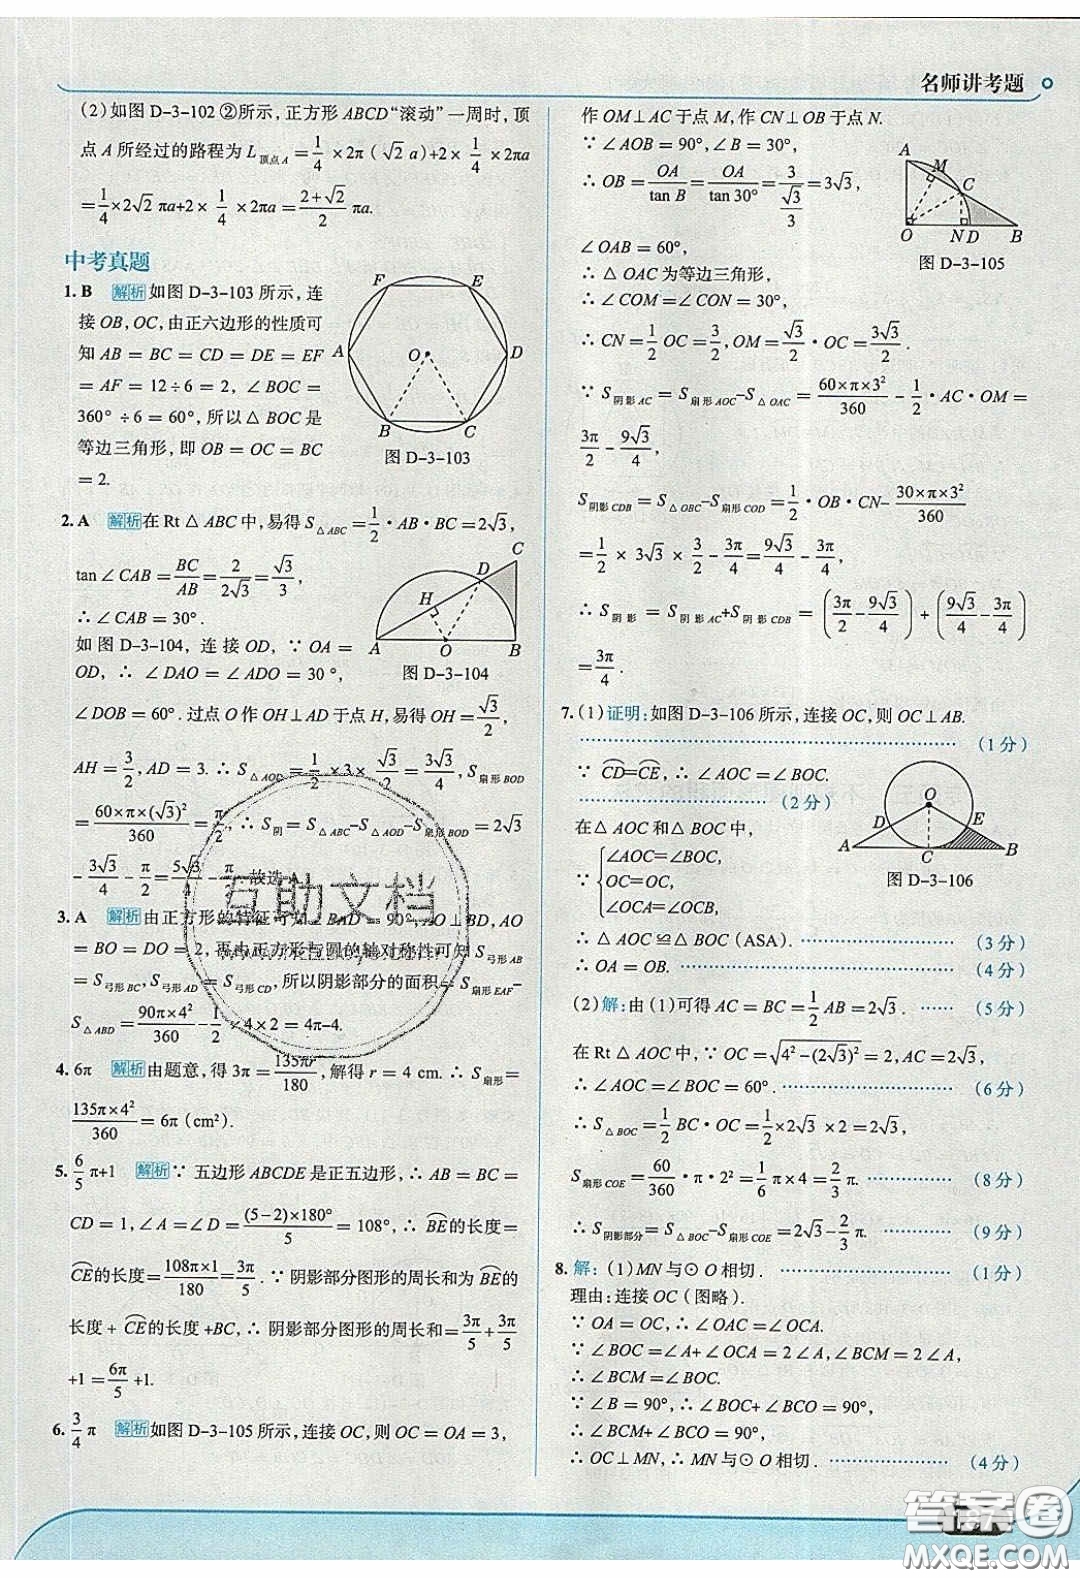 名师讲考题
(2)如图 D-3-102 ②所示，正方形 ABCD“滚动”一周时，顶
点 A 所经过的路程为 L顶点A = 1/4 × 2π ( √2 a)+2× 1/4 ×2πa
= 1/4 ×2√2 πa+2× 1/4 ×2πa = (2+√2)/2 πa.
中考真题
1. B 解析 如图 D-3-103 所示，连
接 OB, OC, 由正六边形的性质可
知 AB = BC = CD = DE = EF
= AF = 12÷6 = 2, ∠BOC =
360°÷6 = 60°, 所以△BOC 是
等边三角形，即 OB = OC = BC
= 2.
F E A O D B C
图 D-3-103
2. A 解析 在 Rt△ABC 中，易得 S△ABC = 1/2 ·AB·BC = 2√3,
tan∠CAB = BC/AB = 2/(2√3) = √3/3,
∴ ∠CAB = 30°.
如图 D-3-104, 连接 OD, ∵ OA =
OD, ∴ ∠DAO = ∠ADO = 30°,
C D H A O B
图 D-3-104
∠DOB = 60°. 过点 O 作 OH⊥AD 于点 H, 易得 OH = √3/2,
AH = 3/2, AD = 3. ∴ S△AOD = 1/2 ×3× √3/2 = 3√3/4, S扇形BOD
= 60×π×(√3)²/360 = π/2, ∴ S阴 = S△ABC−S△AOD−S扇形BOD = 2√3
− 3√3/4 − π/2 = 5√3/4 − π/2. 故选 A.
3. A 解析 由正方形的特征可知 ∠BAD = 90°, AO⊥BD, AO
= BO = DO = 2, 再由正方形与圆的轴对称性可知 S弓形BF
= S弓形BC, S弓形AD = S弓形CD, 所以阴影部分的面积 = S扇形EAF−
S△ABD = 90π×4²/360 − 1/2 ×4×2 = 4π−4.
4. 6π 解析 由题意，得 3π = 135πr/180, 解得 r = 4 cm. ∴ S扇形 =
135π×4²/360 = 6π(cm²).
5. 6/5 π+1 解析 ∵ 五边形 ABCDE 是正五边形, ∴ AB = BC =
CD = 1, ∠A = ∠D = (5−2)×180°/5 = 108°, ∴ BE的长度=
CE的长度= 108π×1/180 = 3π/5. ∵ 阴影部分图形的周长和为 BE的
长度+ CE的长度+BC, ∴ 阴影部分图形的周长和= 3π/5 + 3π/5
+1 = 6π/5 +1.
6. 3/4 π 解析 如图 D-3-105 所示，连接 OC, 则 OC = OA = 3,
作 OM⊥AC 于点 M, 作 CN⊥OB 于点 N.
∵ ∠AOB = 90°, ∠B = 30°,
∴ OB = OA/tan B = OA/tan 30° = 3/(√3/3) = 3√3,
∠OAB = 60°,
∴ △OAC 为等边三角形,
∴ ∠COM = ∠CON = 30°,
A M C O N D B
图 D-3-105
∴ CN = 1/2 OC = 3/2, OM = √3/2 ·OC = 3√3/2.
∵ S阴影AC = S扇形AOC−S△OAC = 60×π×3²/360 − 1/2 ·AC·OM =
3π/2 − 9√3/4,
S阴影CDB = S△OBC−S扇形COD = 1/2 ·OB·CN− 30×π×3²/360
= 1/2 × 3√3 × 3/2 − 3π/4 = 9√3/4 − 3π/4,
∴ S阴影 = S阴影AC+S阴影CDB = (3π/2 − 9√3/4) + (9√3/4 − 3π/4)
= 3π/4.
7. (1)证明：如图 D-3-106 所示，连接 OC, 则 OC⊥AB.
(1分)
∵ CD=CE, ∴ ∠AOC = ∠BOC.
(2分)
在△AOC 和△BOC 中,
∵ {∠AOC=∠BOC,
OC=OC,
∠OCA=∠OCB,
O D E A C B
图 D-3-106
∴ △AOC≌△BOC(ASA). (3分)
∴ OA = OB. (4分)
(2)解：由(1)可得 AC = BC = 1/2 AB = 2√3. (5分)
在 Rt△AOC 中, ∵ OC = √(4²−(2√3)²) = 2, AO = 2OC,
∴ ∠AOC = ∠BOC = 60°. (6分)
∴ S△BOC = 1/2 BC·OC = 1/2 ×2√3 ×2 = 2√3,
S扇形COE = 60/360 ·π·2² = 1/6 π×4 = 2/3 π. (8分)
∴ S阴影部分 = S△BOC−S扇形COE = 2√3− 2/3 π. (9分)
8. 解：(1)MN 与⊙O 相切. (1分)
理由：连接 OC(图略).
∵ OA = OC, ∴ ∠OAC = ∠OCA.
∵ ∠BOC = ∠A+∠OCA = 2∠A, ∠BCM = 2∠A,
∴ ∠BCM = ∠BOC.
∵ ∠B = 90°, ∴ ∠BOC+∠BCO = 90°,
∴ ∠BCM+∠BCO = 90°,
∴ OC⊥MN, ∴ MN 与⊙O 相切. (4分)
互助文档
答案圈
MXQE.COM